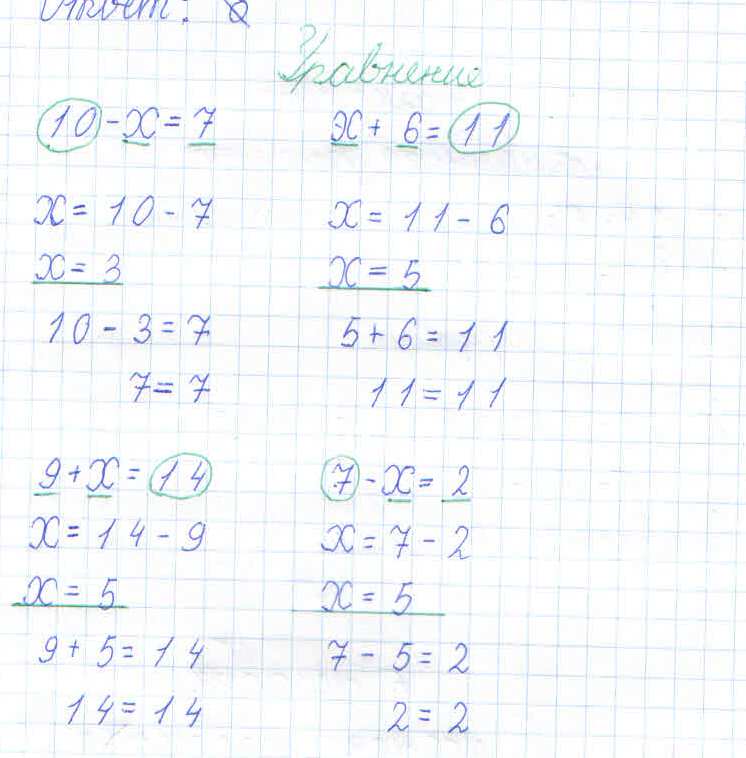 Ответ: 2
Уравнение
10 - x = 7
x = 10 - 7
x = 3
10 - 3 = 7
7 = 7
x + 6 = 11
x = 11 - 6
x = 5
5 + 6 = 11
11 = 11
9 + x = 14
x = 14 - 9
x = 5
9 + 5 = 14
14 = 14
7 - x = 2
x = 7 - 2
x = 5
7 - 5 = 2
2 = 2